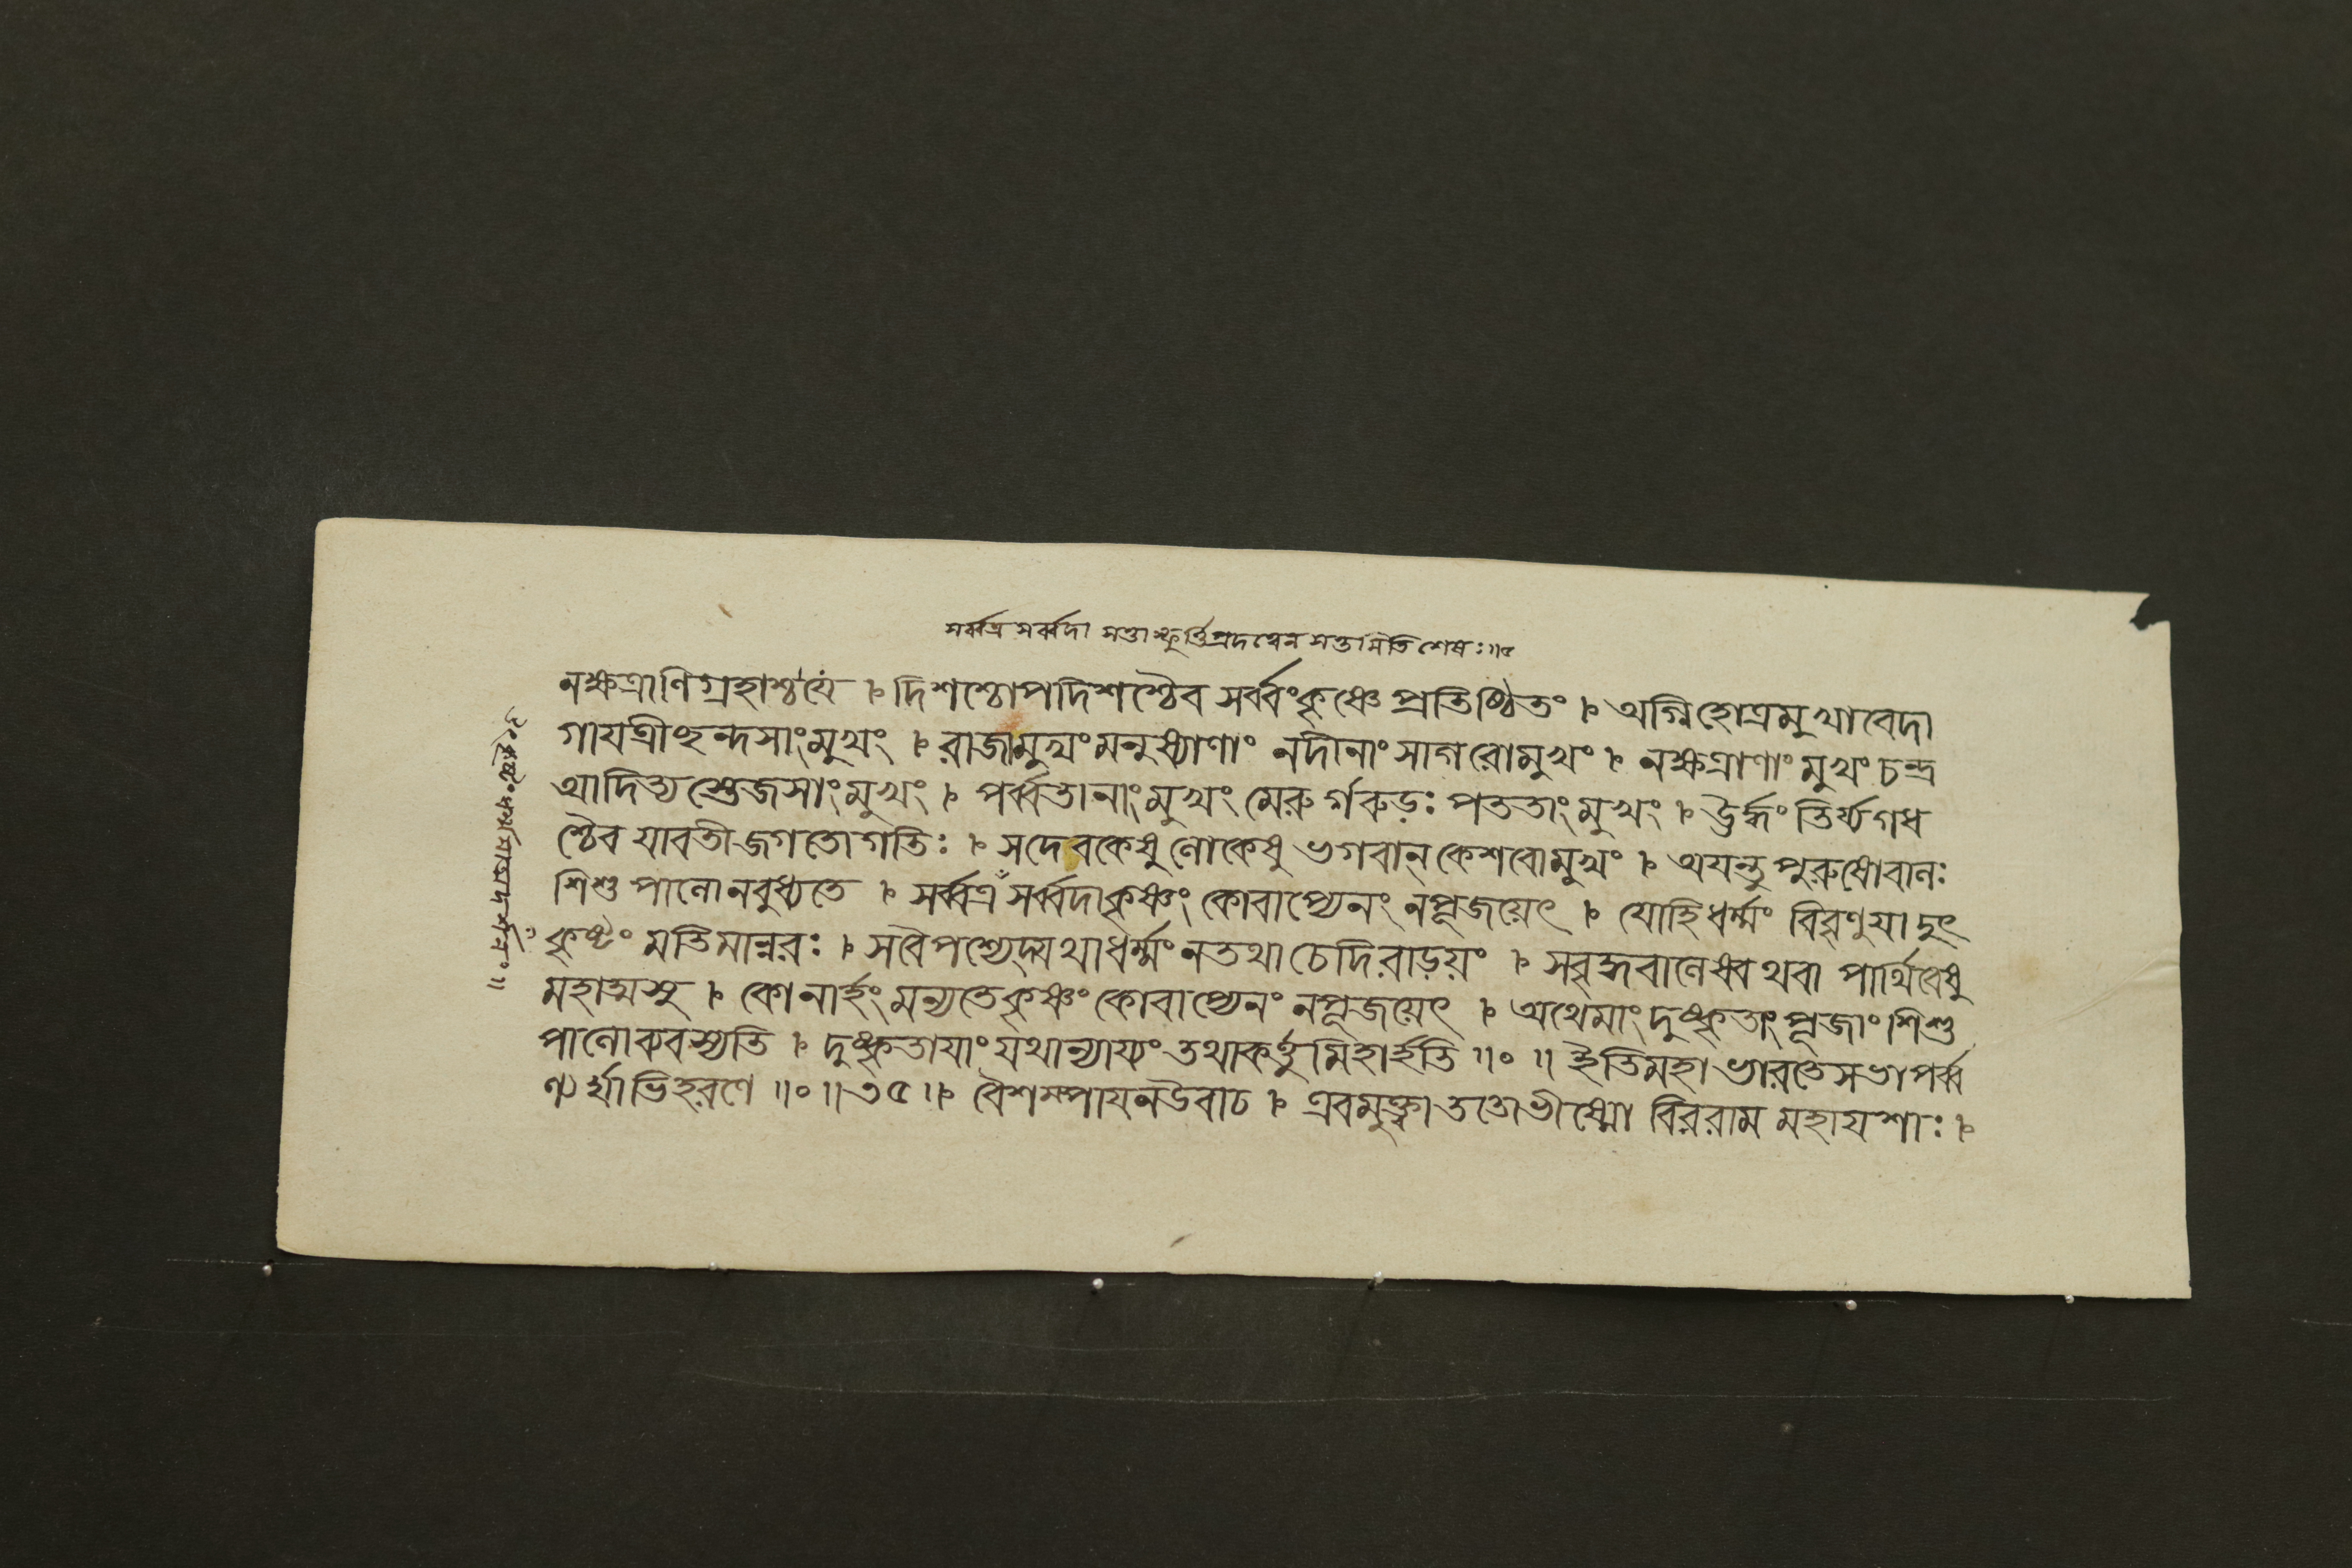 সর্ব্বত্র সর্ব্বদা সত্তাস্ফূর্ত্তিপ্রদত্বেন সত্তামিতি শেষঃ॥৫
নক্ষত্রাণিগ্রহাশ্চযে । দিশশ্চোপদিশশ্চৈব সর্ব্বংকৃষ্ণে প্রতিষ্ঠিতং । অগ্নিহোত্রমুখাবেদা
গাযত্রীচ্ছন্দসাংমুখং । রাজামুখংমনুষ্যাণাং নদীনাং সাগরোমুখং । নক্ষত্রাণাং মুখং চন্দ্র
আদিত্যস্তেজসাংমুখং । পর্ব্বতানাংমুখং মেরুর্গরুড়ঃ পততাংমুখং । ঊর্দ্ধং তির্য্যগধ
শ্চৈব যাবতীজগতোগতিঃ । সদেবকেষুলোকেষু ভগবান্ কেশবোমুখং । অযন্তুপুরুষোবালঃ
শিশুপালোনবুধ্যতে । সর্ব্বত্রঁ সর্ব্বদাকৃষ্ণং কোবাপ্যেনং নপূজয়েৎ । যোহিধর্ম্মং বিবৃণুযাদুৎ
কৃষ্টং মতিমান্নরঃ । সবৈপশ্যেদ্যথাধর্ম্মং নতথা চেদিরাড়য়ং । সবৃদ্ধবালেষ্বথবা পার্থিবেষু
মহাত্মসু । কোনার্হংমন্যতেকৃষ্ণং কোবাপ্যেনং নপূজয়েৎ । অথেমাংদুষ্কৃতাংপূজাং শিশু
পালোব্যবস্যতি । দুষ্কৃতাযাংযথান্যায্যং তথাকর্ত্তুমিহার্হতি ॥০॥ ইতিমহাভারতেসভাপর্ব্ব
ণ্যর্ঘ্যাভিহরণে ॥০॥৩৫॥ বৈশম্পাযনউবাচ । এবমুক্ত্বাততোভীষ্মো বিররাম মহাযশাঃ ।